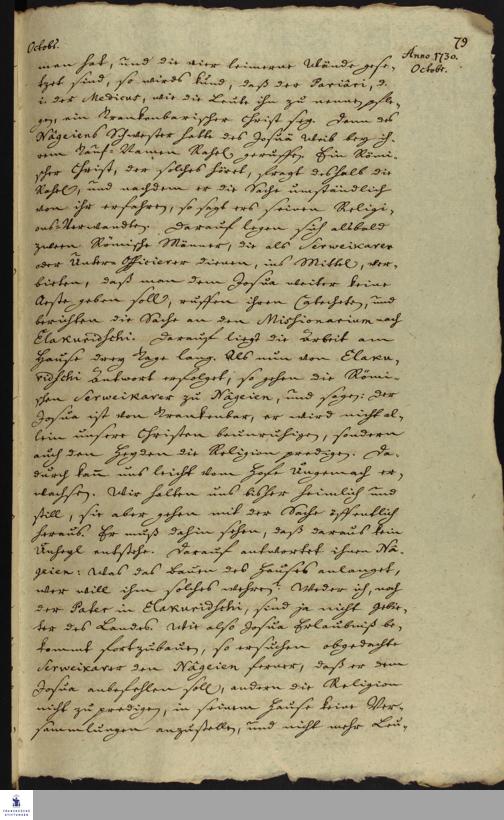 79
Octobr.
Anno 1730.
Octobr.
man hat, und die vier leimerne Wände gese-
tzet sind, so wirds kund, daß der Pariári, d.
i. der Medicus, wie die Leute ihn zu nennen pfle-
gen, ein Trankenbarischer Christ sey. Denn des
Nágeiens Schwester hatte des Josuä Weib bey ih-
rem Tauf-Namen Rahel geruffen. Ein Römi-
scher Christ, der solches höret, fragt deshalb die
Rahel, und nachdem er die Sache umständlich
von ihr erfahren, so sagt ers seinen Religi-
ons-Verwandten. Darauf legen sich alsbald
zween Römische Männer, die als Serweikarer
oder Unter-Officierer dienen, ins Mittel, ver-
bieten, daß man dem Josua weiter keine
Aeste geben soll, ruffen ihren Catecheten, und
berichten die Sache an den Missionarium nach
Elakuridschi. Darauf liegt die Arbeit am
Hause drey Tage lang. Als nun von Elaku-
ridschi Antwort erfolget, so gehen die Römi-
schen Serweikarer zu Nágeien, und sagen: der
Josua ist von Trankenbar, er wird nicht al-
lein unsere Christen beunruhigen, sondern
auch den Heyden die Religion predigen. Da-
durch kan uns leicht vom Hofe Ungemach er-
wachsen. Wir halten uns bisher heimlich und
still, sie aber gehen mit der Sache öffentlich
heraus. Er muß dahin sehen, daß daraus kein
Unheyl entstehe. Darauf antwortet ihnen Ná-
geien: Was das Bauen des Hauses anlanget,
wer will ihm solches wehren? Weder ich, noch
der Pater in Elakuridschi, sind ja nicht Gebie-
ter des Landes. Wie also Josua Erlaubniß be-
kommt fortzubauen, so ersuchen obgedachte
Serweikarer den Nágeien ferner, daß er dem
Josua anbefehlen soll, andern die Religion
nicht zu predigen, in seinem Hause keine Ver-
sammlungen anzustellen, und nicht mehr Leu-
FRANCKESCHE
STIFTUNGEN